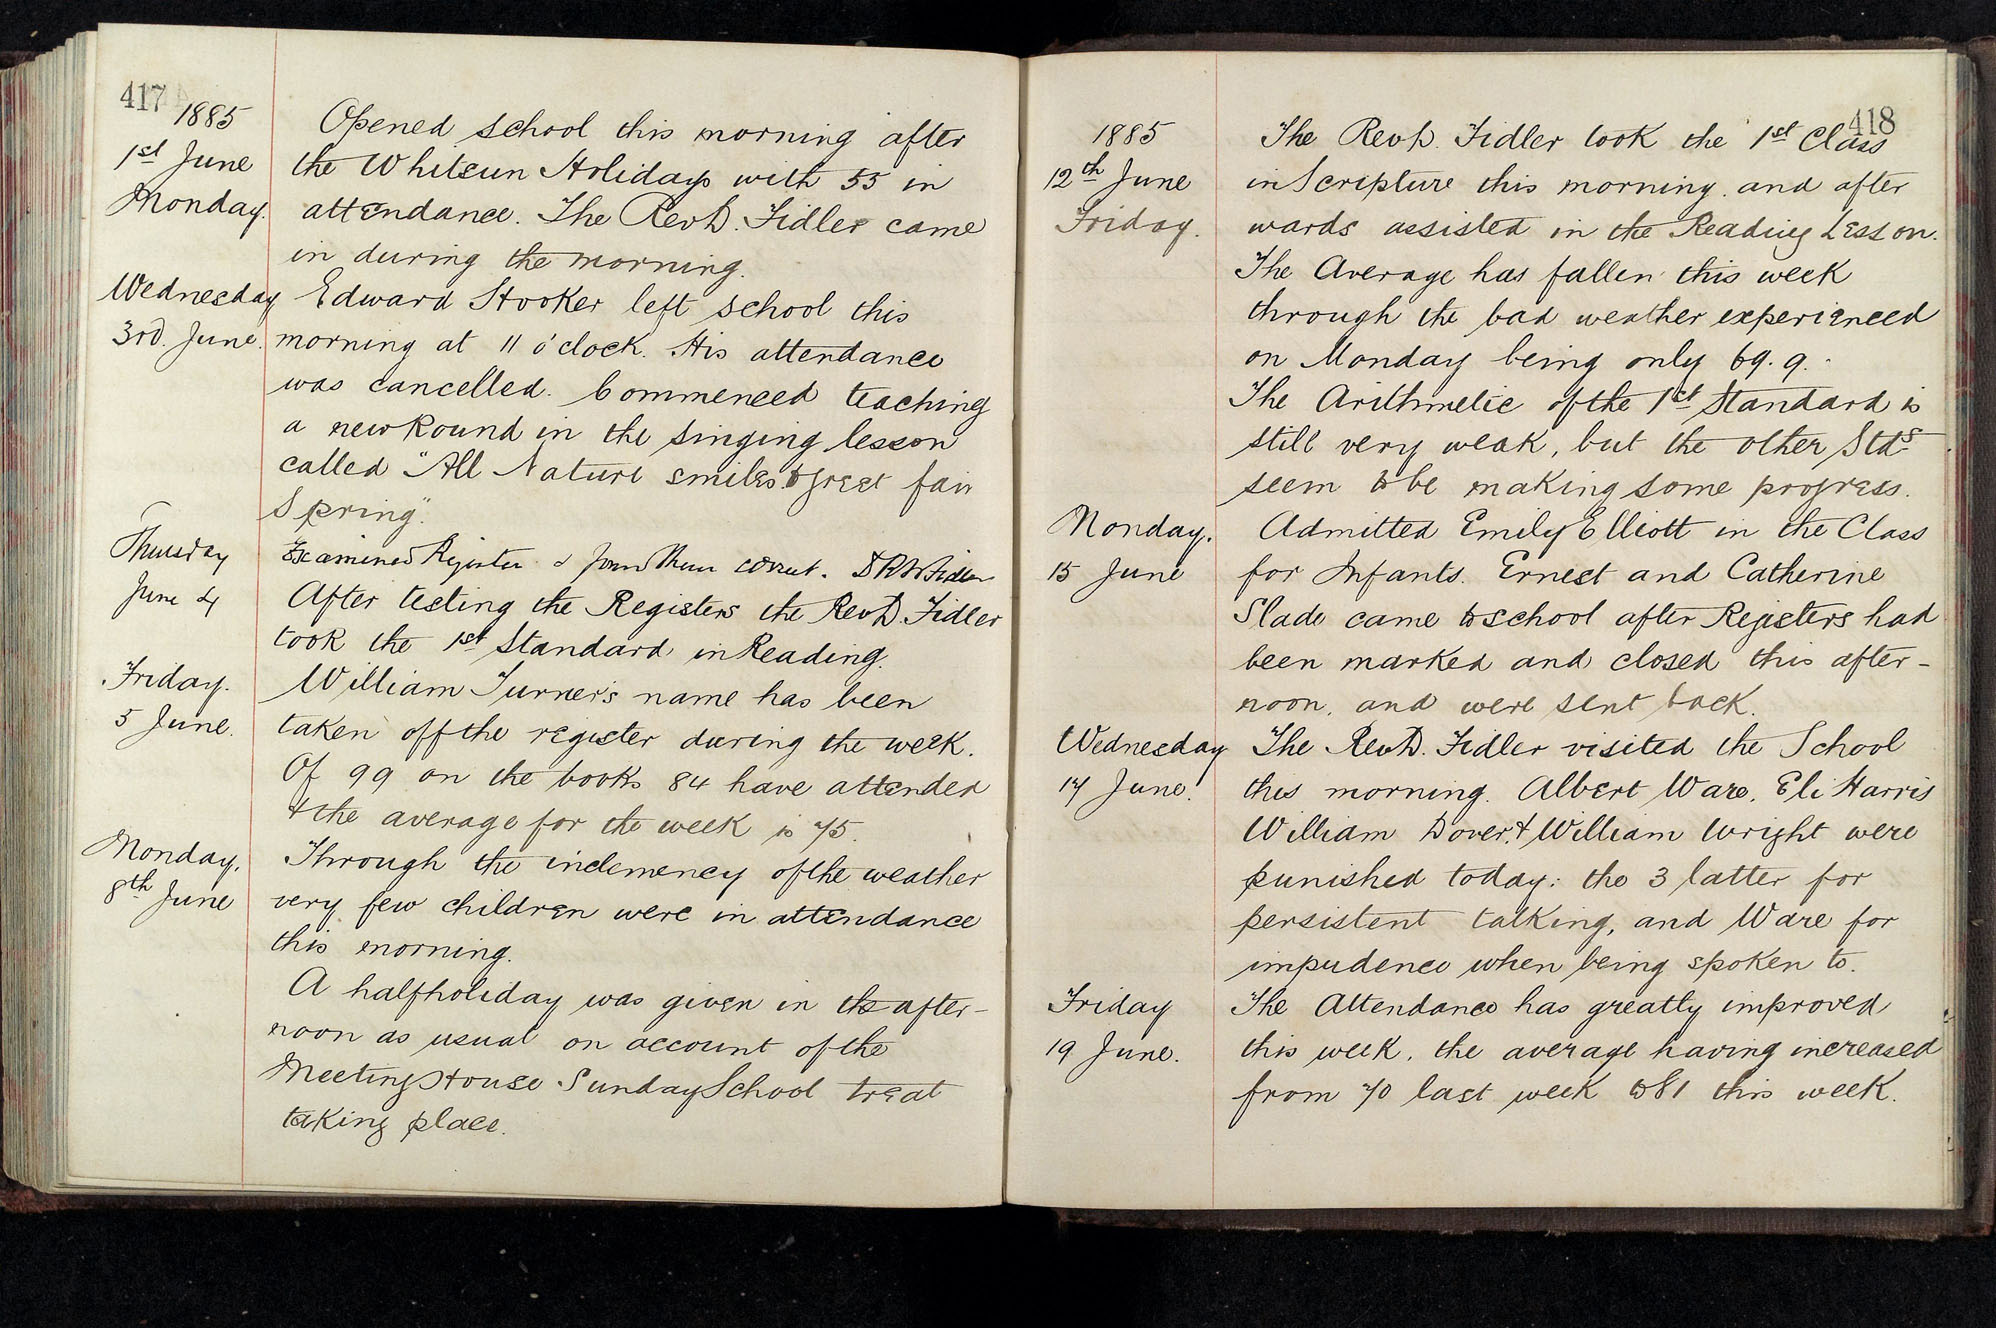 417
1885
1st June
Monday.
Opened school this morning after
the Whitsun Holidays with 55 in
attendance. The Rev D. Fidler came
in during the morning.
Wednesday
3rd. June.
Edward Hooker left school this
morning at 11 o'clock. His attendance
was cancelled. Commenced teaching
a new Round in the singing lesson
called "All Nature smiles to greet fair
Spring."
Thursday
June 4
Examined Register & found them correct. D R W Fidler
After testing the Registers the Rev D. Fidler
took the 1st Standard in Reading.
Friday.
5 June.
William Turner's name has been
taken off the register during the week.
Of 99 on the books 84 have attended
& the average for the week is 75.
Monday,
8th June
Through the inclemency of the weather
very few children were in attendance
this morning.
A half holiday was given in the after-
noon as usual on account of the
Meeting House Sunday School treat
taking place.
418
1885
12th June
Friday.
The Rev D. Fidler took the 1st Class
in Scripture this morning. and after
wards assisted in the Reading Lesson.
The Average has fallen this week
through the bad weather experienced
on Monday being only 69.9.
The Arithmetic of the 1st Standard is
still very weak, but the other Stds
seem to be making some progress.
Monday.
15 June
Admitted Emily Elliott in the Class
for Infants. Ernest and Catherine
Slade came to school after Registers had
been marked and closed this after-
noon, and were sent back.
Wednesday
17 June.
The Rev D. Fidler visited the School
this morning. Albert Ware, Eli Harris
William Dover & William Wright were
punished today: the 3 latter for
persistent talking, and Ware for
impudence when being spoken to.
Friday
19 June.
The Attendance has greatly improved
this week, the average having increased
from 70 last week to 81 this week.